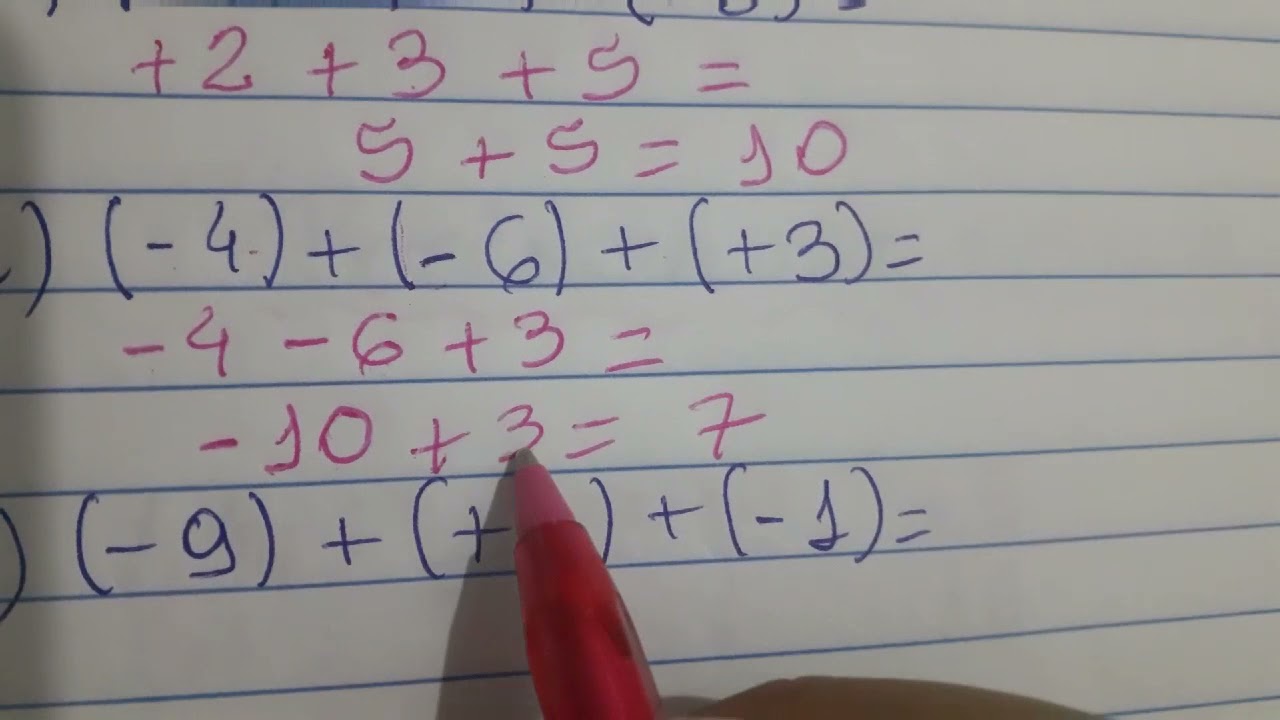 +2 +3 +5 =
5 + 5 = 10
) (-4) + (-6) + (+3) =
-4 -6 +3 =
-10 +3 = 7
) (-9) + (+ ) + (-1) =